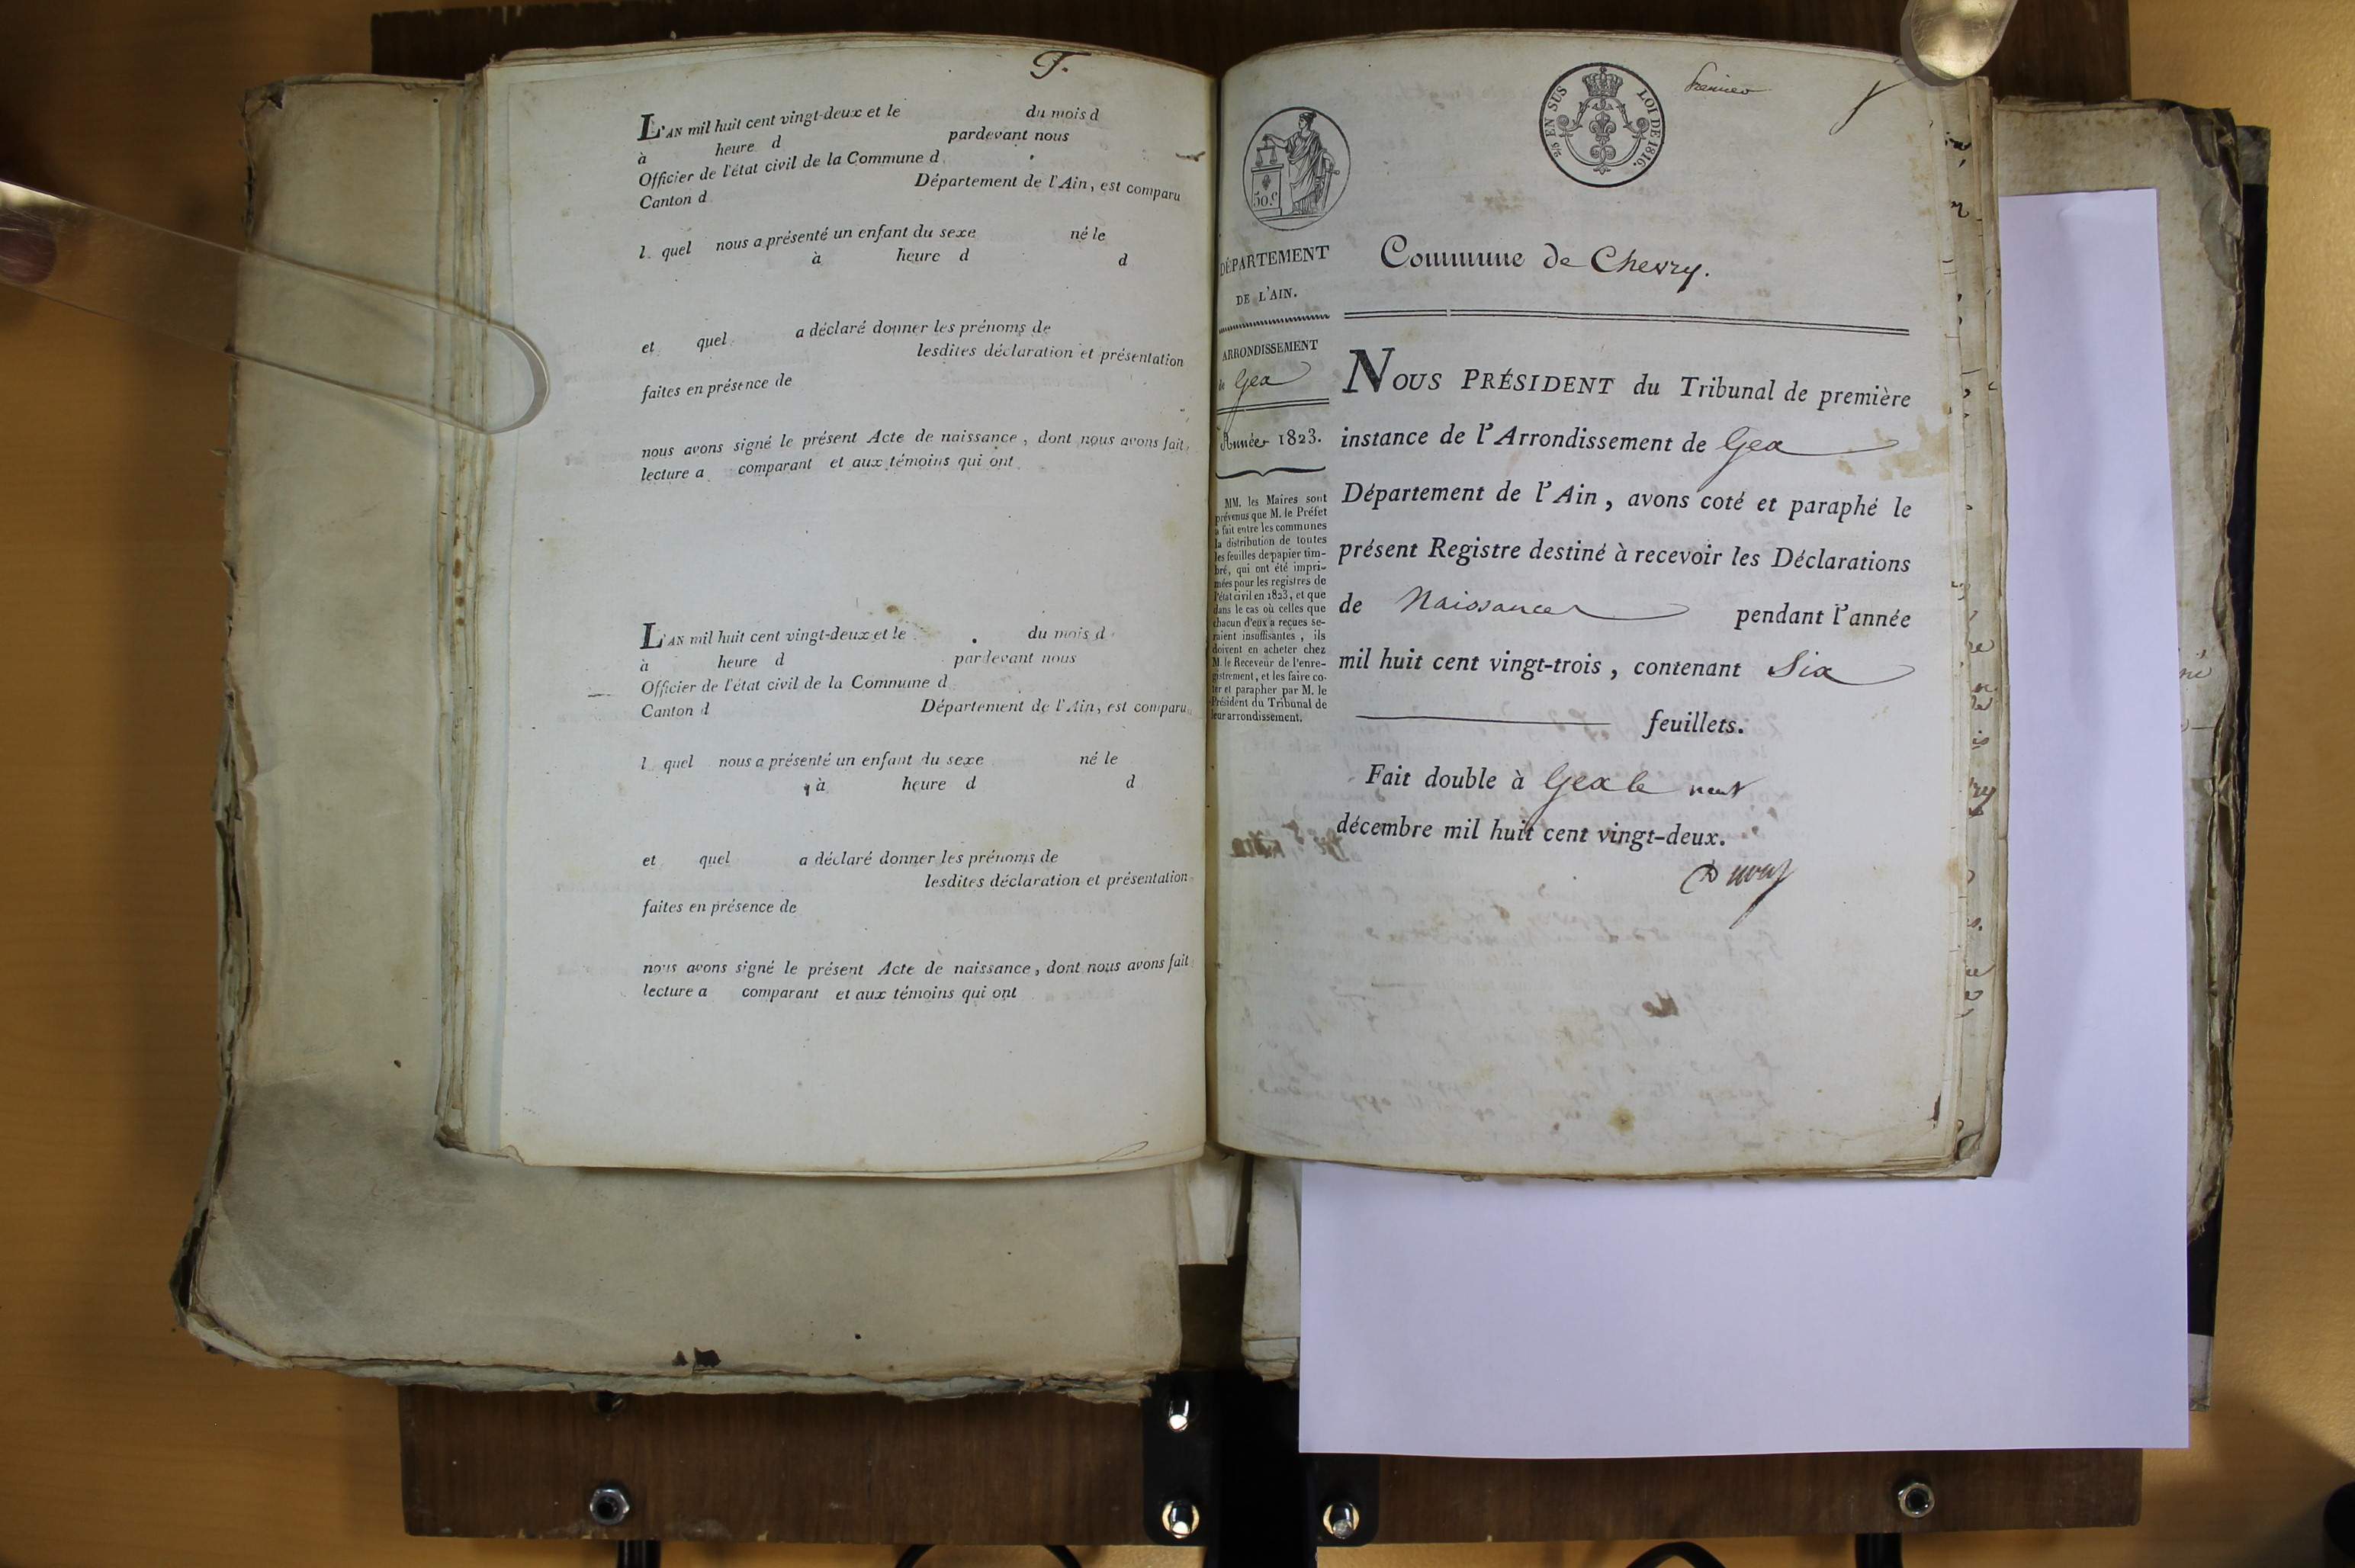 F.
L'AN mil huit cent vingt-deux et le du mois d
à heure d pardevant nous
Officier de l'état civil de la Commune d
Canton d Département de l'Ain, est comparu
l quel nous a présenté un enfant du sexe né le
à heure d d
et quel a déclaré donner les prénoms de
lesdites déclaration et présentation
faites en présence de
nous avons signé le présent Acte de naissance, dont nous avons fait
lecture a comparant et aux témoins qui ont
L'AN mil huit cent vingt-deux et le du mois d
à heure d pardevant nous
Officier de l'état civil de la Commune d
Canton d Département de l'Ain, est comparu
l quel nous a présenté un enfant du sexe né le
à heure d d
et quel a déclaré donner les prénoms de
lesdites déclaration et présentation
faites en présence de
nous avons signé le présent Acte de naissance, dont nous avons fait
lecture a comparant et aux témoins qui ont
50.c
EN SUS LOI DE 1816.
Premier
DÉPARTEMENT
DE L'AIN.
ARRONDISSEMENT
de Gex
Année 1823.
MM. les Maires sont
prévenus que M. le Préfet
a fait entre les communes
la distribution de toutes
les feuilles de papier tim-
bré, qui ont été impri-
mées pour les registres de
l'état civil en 1823, et que
dans le cas où celles que
chacun d'eux a reçues se-
raient insuffisantes, ils
doivent en acheter chez
M. le Receveur de l'enre-
gistrement, et les faire co-
ter et parapher par M. le
Président du Tribunal de
leur arrondissement.
Commune de Chevry.
NOUS PRÉSIDENT du Tribunal de première
instance de l'Arrondissement de Gex
Département de l'Ain, avons coté et paraphé le
présent Registre destiné à recevoir les Déclarations
de Naissances pendant l'année
mil huit cent vingt-trois, contenant Six
feuillets.
Fait double à Gex le neuf
décembre mil huit cent vingt-deux.